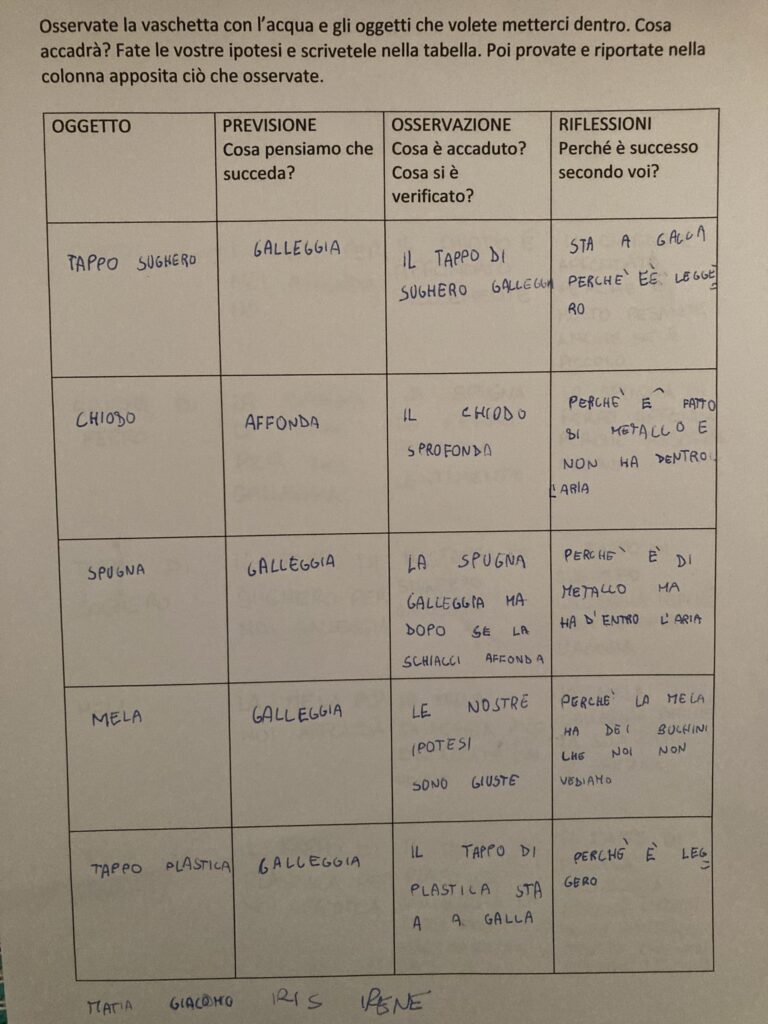 Osservate la vaschetta con l'acqua e gli oggetti che volete metterci dentro. Cosa
accadrà? Fate le vostre ipotesi e scrivetele nella tabella. Poi provate e riportate nella
colonna apposita ciò che osservate.
OGGETTO
PREVISIONE
Cosa pensiamo che
succeda?
OSSERVAZIONE
Cosa è accaduto?
Cosa si è
verificato?
RIFLESSIONI
Perché è successo
secondo voi?
TAPPO SUGHERO
GALLEGGIA
IL TAPPO DI
SUGHERO GALLEGGIA
STA A GALLA
PERCHE' EÈ LEGGE
RO
CHIODO
AFFONDA
IL CHIODO
SPROFONDA
PERCHE' E^ FATTO
DI METALLO E
NON HA DENTRO
L'ARIA
SPUGNA
GALLEGGIA
LA SPUGNA
GALLEGGIA MA
DOPO SE LA
SCHIACCI AFFONDA
PERCHE' È DI
METALLO MA
HA D'ENTRO L'ARIA
MELA
GALLEGGIA
LE NOSTRE
IPOTESI
SONO GIUSTE
PERCHE' LA MELA
HA DEI BUCHINI
CHE NOI NON
VEDIAMO
TAPPO PLASTICA
GALLEGGIA
IL TAPPO DI
PLASTICA STA
A A GALLA
PERCHE' È LEG
GERO
GIACOMO IRIS IRENE